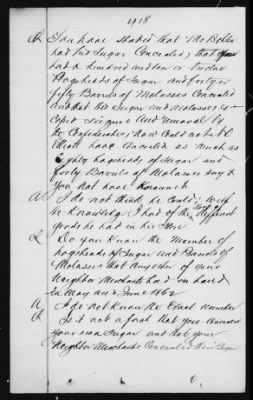 1418
Q You have stated that Mr Bolln
had his Sugar Concealed, that
had a hundred and ten or twelve
Hogsheads of Sugar and forty or
fifty Barrels of Molasses Concealed
and that his Sugar and Molasses
Seizure and removal by
the Confederates; Now Could not
Elliott have Concealed as much as
Eighty hogsheads of Sugar and
forty Barrels of Molasses and
you not have Known it
A I do not think he Could; with
the Knowledge I had of the different
goods he had in his Store
Q Do you Know the Number of
hogsheads of Sugar and Barrels of
Molasses that any other of your
Neighbor Merchants had on hand
in May and June 1862
A I do not Know the Exact number
Q Is it not a fact that you Concealed
your own Sugar and that your
Neighbor Merchants Concealed their Sugar